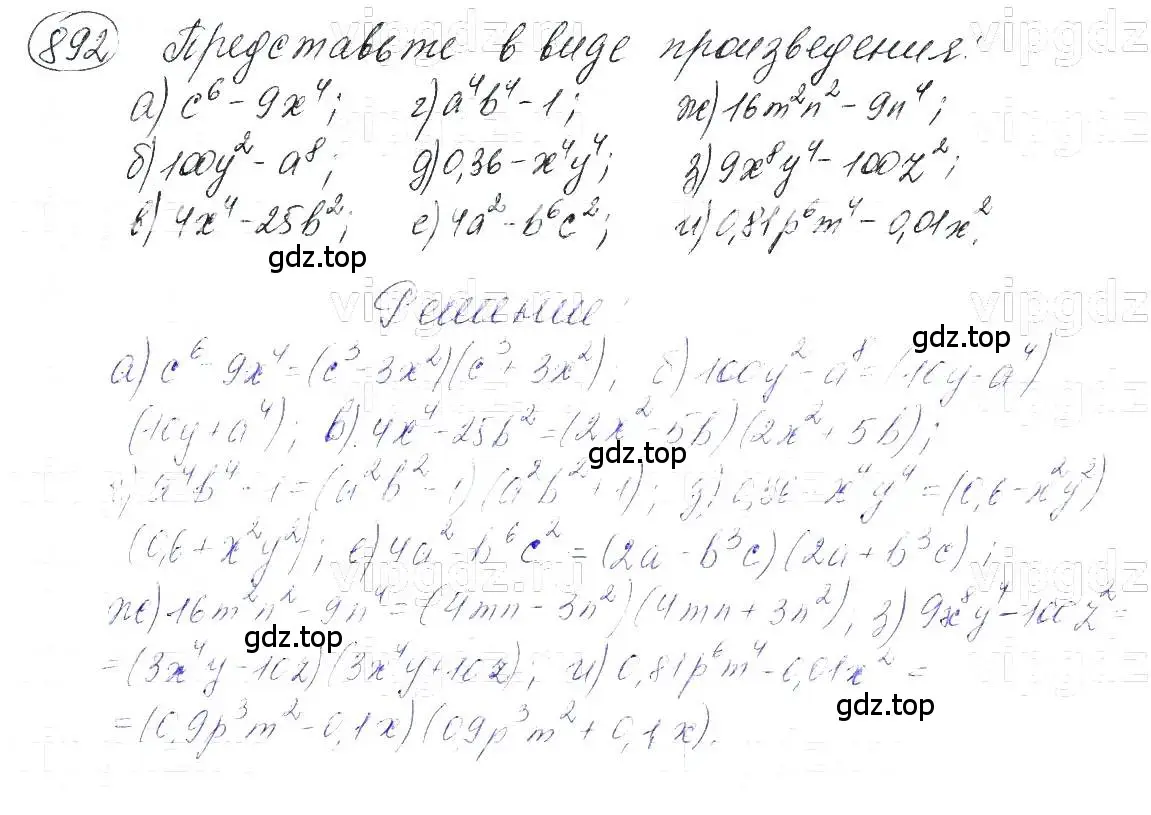 892 Представьте в виде произведения:
а) c⁶ - 9x⁴; г) a⁴b⁴ - 1; ж) 16m²n² - 9n⁴;
б) 100y² - a⁸; д) 0,36 - x⁴y⁴; з) 9x⁸y⁴ - 100z²;
в) 4x⁴ - 25b²; е) 4a² - b⁶c²; и) 0,81p⁶m⁴ - 0,01x².
gdz.top
Решение:
gdz.top
а) c⁶ - 9x⁴ = (c³ - 3x²)(c³ + 3x²); б) 100y² - a⁸ = (10y - a⁴)
(10y + a⁴); в) 4x⁴ - 25b² = (2x² - 5b)(2x² + 5b);
gdz.top
г) a⁴b⁴ - 1 = (a²b² - 1)(a²b² + 1); д) 0,36 - x⁴y⁴ = (0,6 - x²y²)
(0,6 + x²y²); е) 4a² - b⁶c² = (2a - b³c)(2a + b³c);
ж) 16m²n² - 9n⁴ = (4mn - 3n²)(4mn + 3n²); з) 9x⁸y⁴ - 100z² =
gdz.top
= (3x⁴y - 10z)(3x⁴y + 10z); и) 0,81p⁶m⁴ - 0,01x² =
gdz.top
= (0,9p³m² - 0,1x)(0,9p³m² + 0,1x).